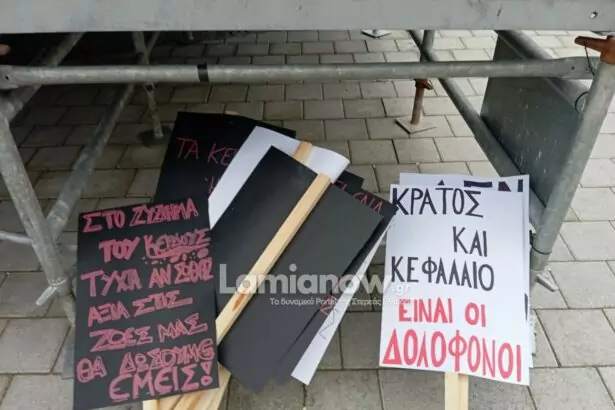 ΣΤΟ ΖΥΓΙΣΜΑ
ΤΟΥ ΚΕΡΔΟΥΣ
ΤΥΧΑ ΑΝ ΣΩΘΕΙΣ
ΑΞΙΑ ΣΤΙΣ
ΖΩΕΣ ΜΑΣ
ΘΑ ΔΩΣΟΥΜΕ
ΕΜΕΙΣ!
ΤΑ ΚΕΡ
ΚΡΑΤΟΣ
ΚΑΙ
ΚΕΦΑΛΑΙΟ
ΕΙΝΑΙ ΟΙ
ΔΟΛΟΦΟΝΟΙ
Lamianow.gr
Το δυναμικό Portal της Στερεάς Ελλάδας